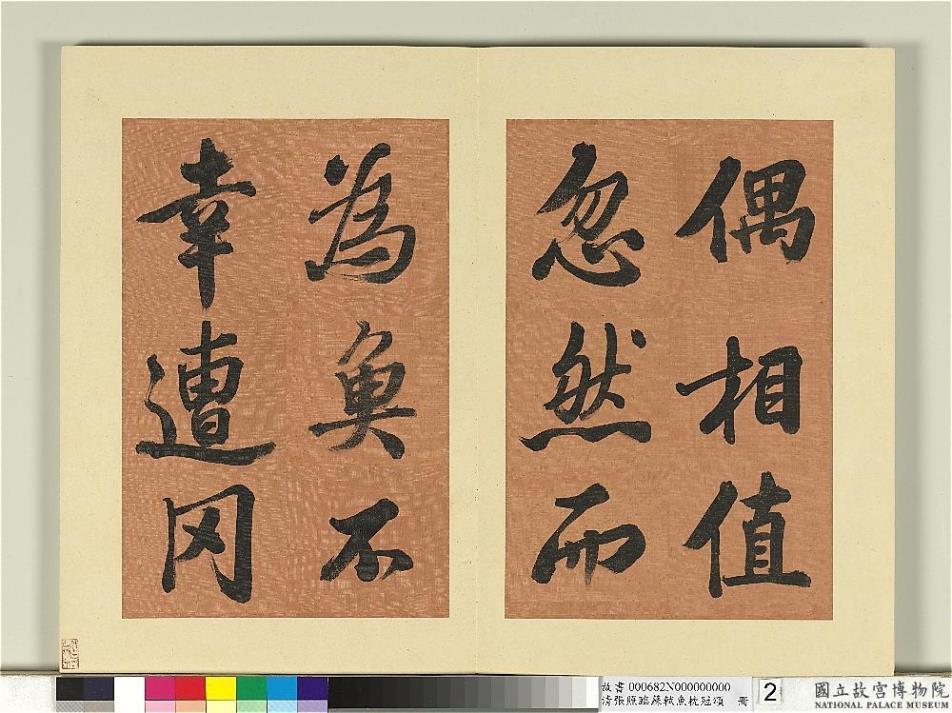 偶相值
忽然而
為魚不
幸遭网
故書000682N000000000
清張照臨蘇軾魚枕冠頌 冊
2
國立故宮博物院
NATIONAL PALACE MUSEUM